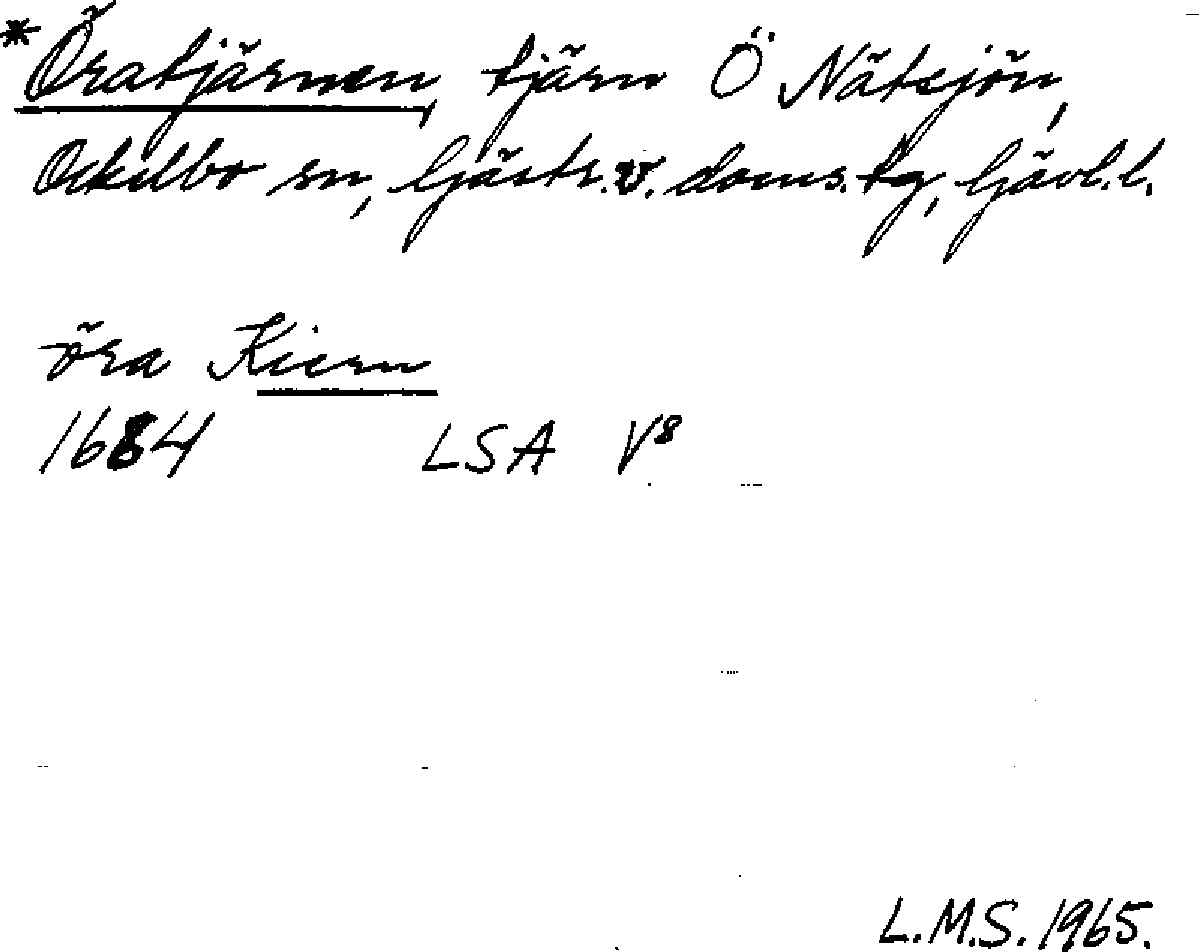 *Öratjärnen, tjärn Ö Nätsjön,
Ockelbo sn, Gästr. v. doms. tg, Gävl. l.
öra Kiern
1684 LSA V8
L.M.S. 1965.